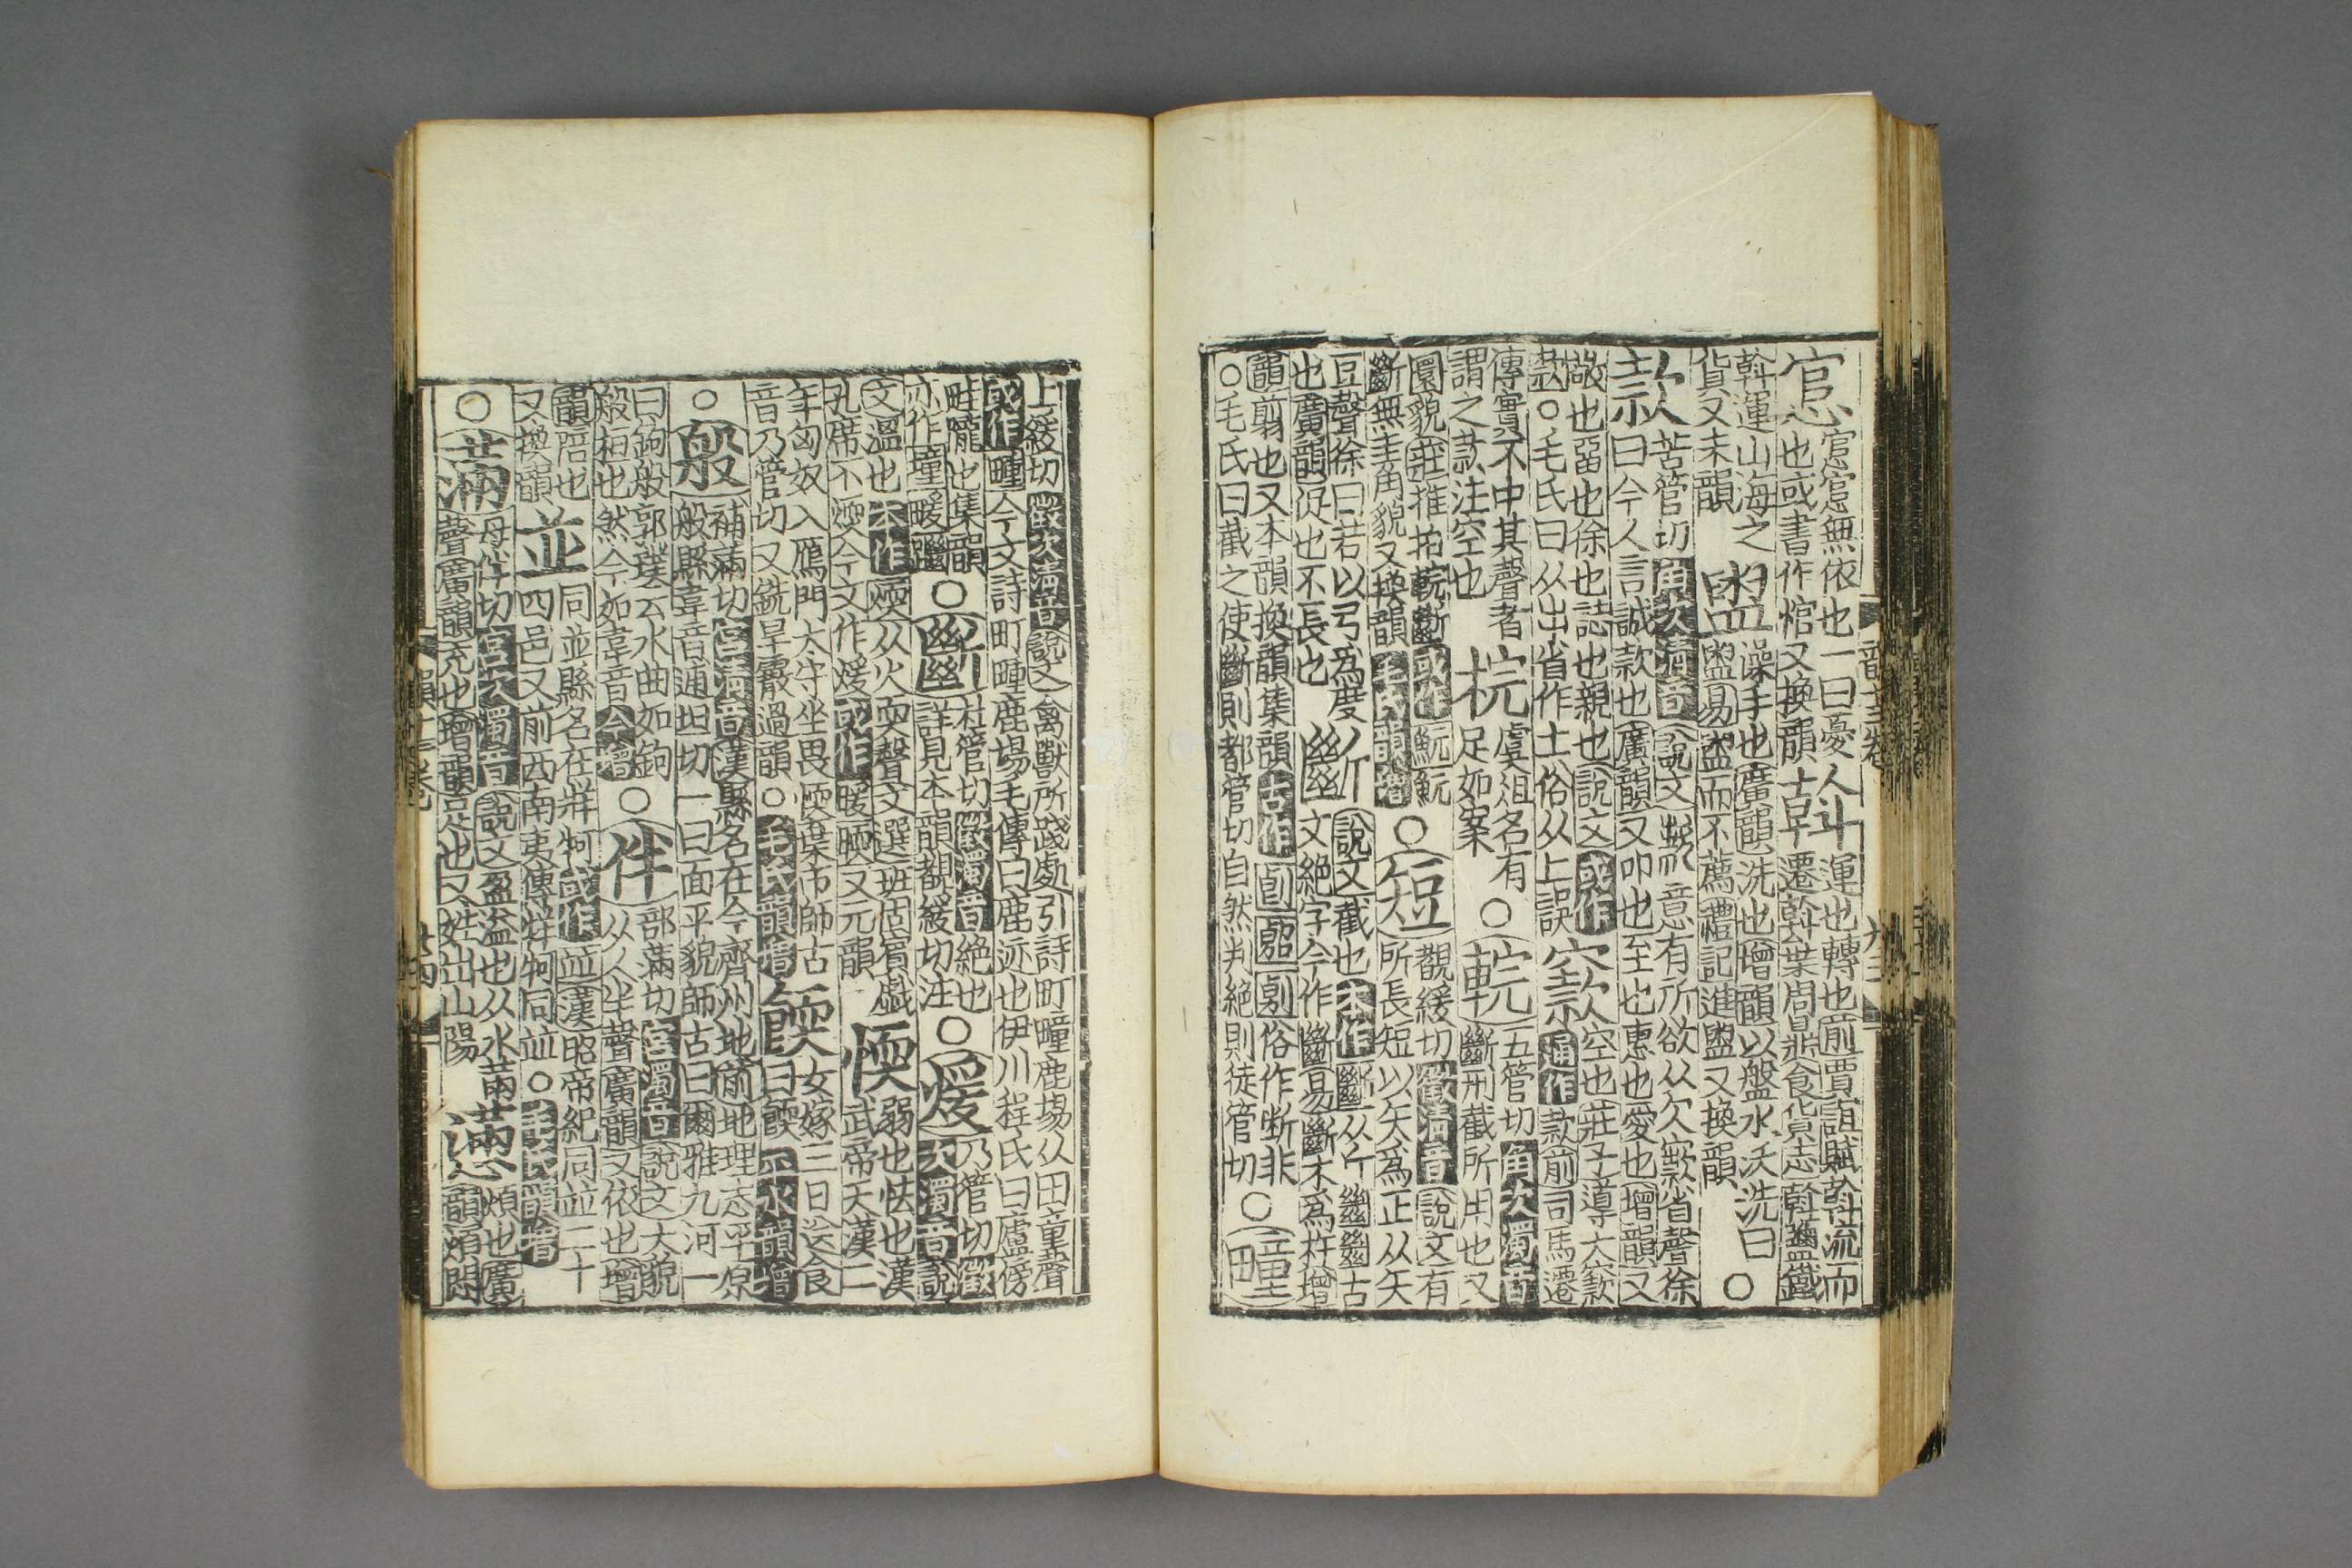 悹 悹悹無依也一曰憂 斡 運也轉也前賈誼賦斡流而
也或書作悺又換韻 斡 遷斡葉周鼎食貨志斡鹽鐵
斡運山海之 盥 澡手也廣韻洗也增韻以盤水沃洗曰
貨又末韻 盥易盥而不薦禮記進盥又換韻 ○
款 苦管切角次清音說文款意有所欲从欠窾省聲徐
曰今人言誠款也廣韻又叩也至也惠也愛也增韻又
敬也留也徐也誌也親也說文或作 窾 空也莊子導大窾
款○毛氏曰从出省作士俗从上誤 通作款前司馬遷
傳實不中其聲者 梡 虞俎名有 ○ 輐 五管切角次濁音
謂之款注空也 足如案 斷刑截所用也又
圜貌莊推拍輐斷或作魭魭 ○ 短 觀緩切徵清音說文有
斷無圭角貌又換韻毛氏韻增 所長短以矢爲正从矢
豆聲徐曰若以弓爲度 斷 說文截也本作斷从斤㡭㡭古
也廣韻促也不長也 文絕字今作斷易斷木爲杵增
韻剪也又本韻換韻集韻古作 俗作断非 ○ 疃
○毛氏曰截之使斷則都管切自然判絕則徒管切
上緩切徵次清音說文禽獸所踐處引詩町疃鹿場从田童聲
或作畽今文詩町畽鹿場毛傳曰鹿迹也伊川程氏曰廬傍
畦壠也集韻 ○ 斷 杜管切徵濁音絕也 ○ 煖 乃管切徵
亦作墥暖躖 詳見本韻覩緩切注 次濁音說
文溫也本作煗从火耎聲文選班固賓戲 愞 弱也怯也漢
孔席不煗今文作煖或作暖㬉又元韻 武帝天漢二
年匈奴入鴈門太守坐畏愞棄市師古 餪 女嫁三日送食
音乃管切又銑旱霰過韻○毛氏韻增 曰餪平水韻增
○ 般 補滿切宮清音漢縣名在今齊州地前地理志平原
般縣韋音逋坦切一曰面平貌師古曰爾雅九河一
曰鉤般郭璞云水曲如鉤 ○ 伴 部滿切宮濁音說文大貌
般桓也然今如韋音今增 从人半聲廣韻又依也增
韻陪也 並 同並縣名在牂牁或作竝漢昭帝紀同並二十
又換韻 四邑又前西南夷傳牂牁同竝○毛氏韻增
○ 滿 母伴切宮次濁音說文盈溢也从水㒼 懣 煩也廣
聲廣韻充也增韻足也又姓出山陽 韻煩悶